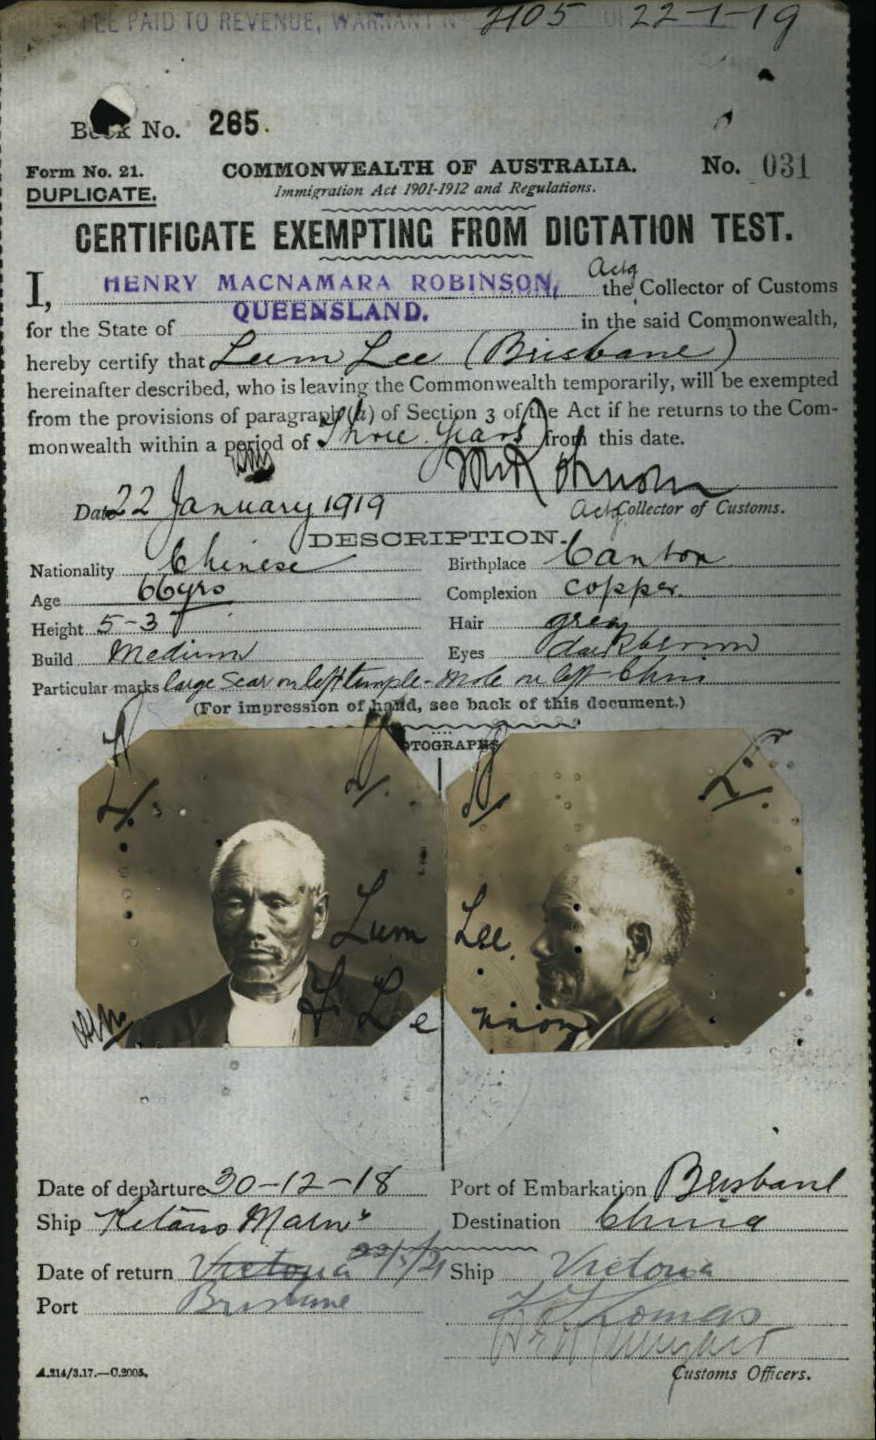 FEE PAID TO REVENUE, WARRANT No 2105 OF 22-1-19
Book No. 265.
Form No. 21. COMMONWEALTH OF AUSTRALIA. No. 031
DUPLICATE. Immigration Act 1901-1912 and Regulations.
CERTIFICATE EXEMPTING FROM DICTATION TEST.
I, HENRY MACNAMARA ROBINSON, Actg the Collector of Customs
for the State of QUEENSLAND. in the said Commonwealth,
hereby certify that Lum Lee (Brisbane)
hereinafter described, who is leaving the Commonwealth temporarily, will be exempted
from the provisions of paragraph (a) of Section 3 of the Act if he returns to the Com-
monwealth within a period of Three Years from this date.
Date 22 January 1919 Actg Collector of Customs.
DESCRIPTION.
Nationality Chinese Birthplace Canton
Age 66yrs Complexion copper.
Height 5-3 Hair grey
Build Medium Eyes dark brown
Particular marks large scar on left temple - mole on left chin
(For impression of hand, see back of this document.)
PHOTOGRAPHS
Lum Lee.
Date of departure 30-12-18 Port of Embarkation Brisbane
Ship Kitano Maru Destination China
Date of return Victoria /21 Ship Victoria
Port Brisbane Thomas
Customs Officers.
A.214/3.17.—C.2005.